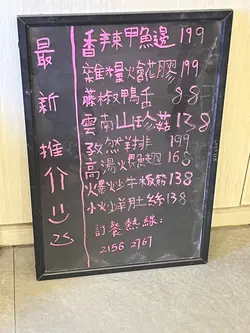 最新推介
香辣甲魚邊 199
雜爆火龍膠 199
藤椒鴨舌 88
雲南山珍菇 138
孜然羊排 199
高湯火焰翅 168
爆炒牛板筋 138
小炒羊肚絲 138
訂餐熱線：
2156 2767